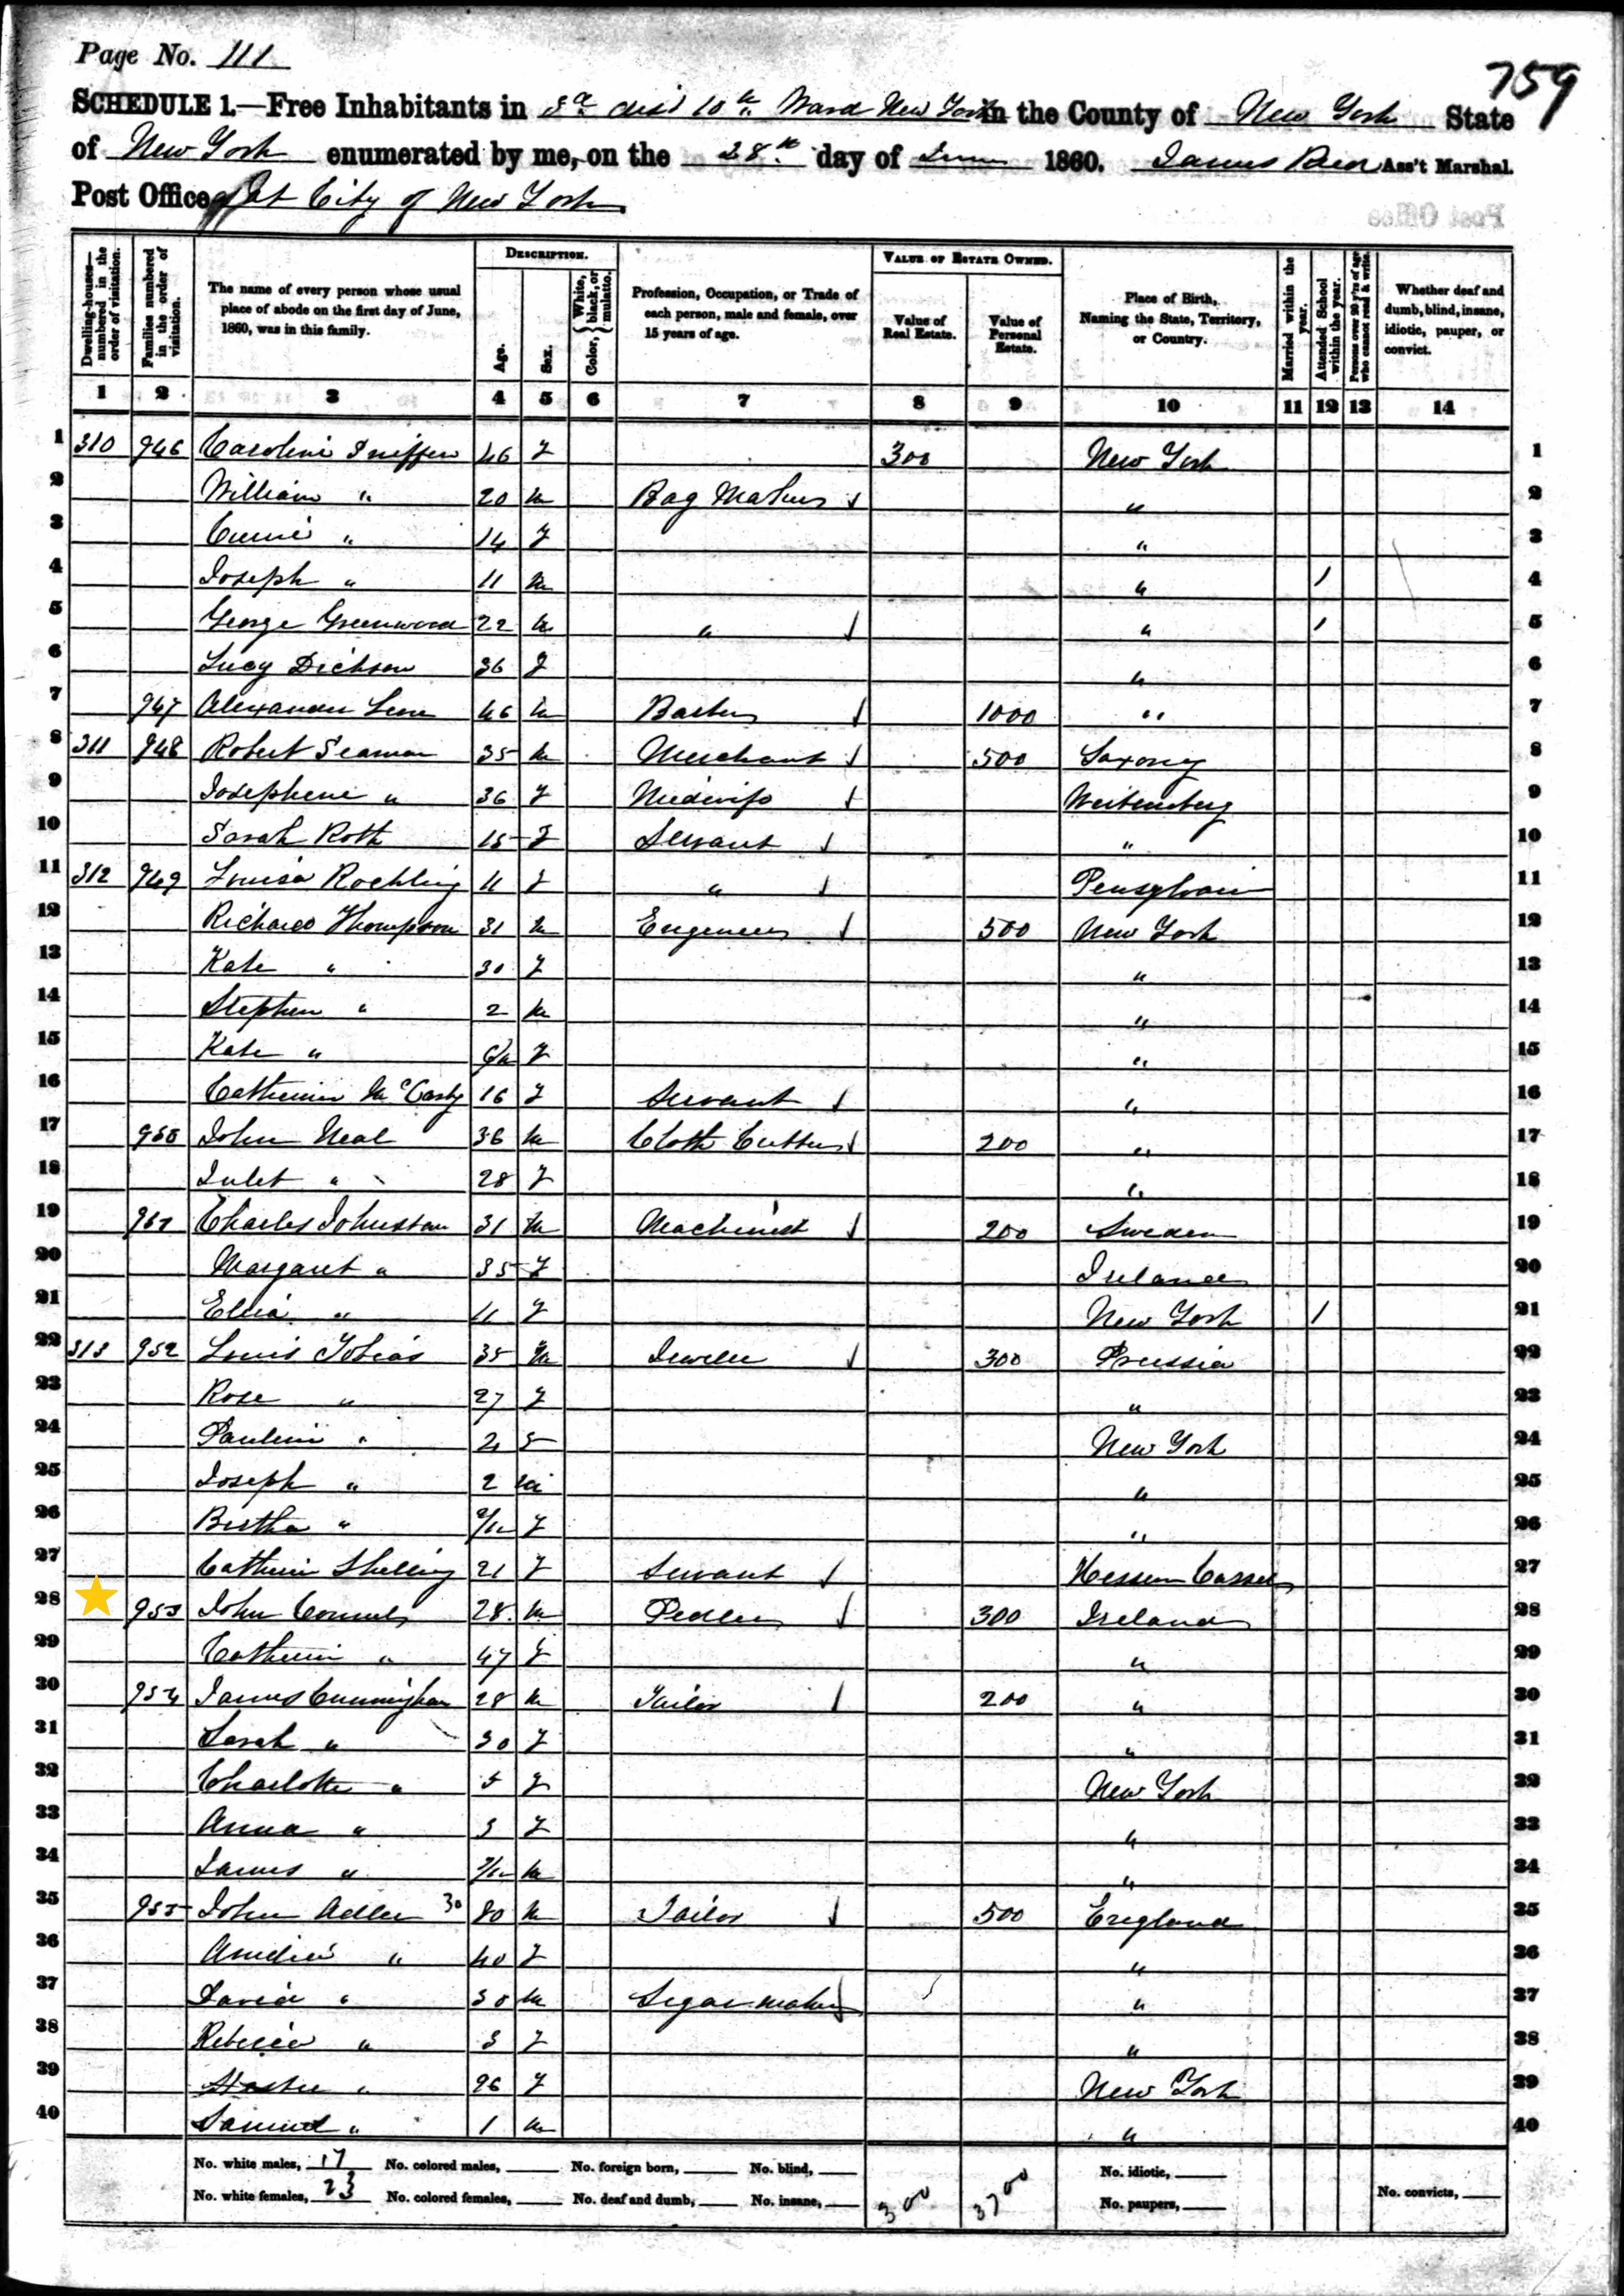 Page No. 111
759
SCHEDULE 1.—Free Inhabitants in 3d dist 10th Ward New York in the County of New York State
of New York enumerated by me, on the 28th day of June 1860. James Ass't Marshal.
Post Office at City of New York
Post Office
Dwelling-houses—numbered in the order of visitation.
Families numbered in the order of visitation.
The name of every person whose usual place of abode on the first day of June, 1860, was in this family.
DESCRIPTION.
Age.
Sex.
Color, { White, black, or mulatto.
Profession, Occupation, or Trade of each person, male and female, over 15 years of age.
VALUE OF ESTATE OWNED.
Value of Real Estate.
Value of Personal Estate.
Place of Birth, Naming the State, Territory, or Country.
Married within the year.
Attended School within the year.
Persons over 20 y'rs of age who cannot read & write.
Whether deaf and dumb, blind, insane, idiotic, pauper, or convict.
1 2 3 4 5 6 7 8 9 10 11 12 13 14
1 310 946 Caroline Sniffen 46 F 300 New York 1
2 William " 20 M Bag Maker " 2
3 " 14 F " 3
4 Joseph " 11 M " / 4
5 George Greenwood 22 M " " / 5
6 Lucy Dickson 36 F " 6
7 947 Alexander 46 M 1000 " 7
8 311 948 Robert Seaman 35 M Merchant 500 Saxony 8
9 Josephene " 36 F Midwife Weitemberg 9
10 Sarah Roth 15 F Servant " 10
11 312 949 Louisa Rochling 11 F " Pensylvain 11
12 Richard Thompson 31 M Engeneer 500 New York 12
13 Kate " 30 F " 13
14 Stephen " 2 M " 14
15 Kate " F " 15
16 Catherine McCarty 16 F Servant " 16
17 950 John Neal 36 M Cloth Cutter 200 " 17
18 Julet " 28 F " 18
19 951 Charles Johnston 31 M Machinist 200 Sweden 19
20 Margaret " 35 F Ireland 20
21 " 11 F New York / 21
22 313 952 Louis Tobias 35 M Jeweler 300 Prussia 22
23 Rose " 27 F " 23
24 Paulini " New York 24
25 Joseph " 2 M " 25
26 Bertha " F " 26
27 Catherin Shelling 21 F Servant Hessen Cassel 27
28 953 John 28 M Pedler 300 Ireland 28
29 Catherin " 47 F " 29
30 954 James Cunningham 28 M Tailor 200 " 30
31 Sarah " 30 F " 31
32 Charlotte " 5 F New York 32
33 Anna " 3 F " 33
34 James " M " 34
35 955 John Adler 30 80 M Tailor 500 England 35
36 Amelia " 40 F " 36
37 David " 30 M Segar maker " 37
38 Rebecca " 3 F " 38
39 " 26 F New York 39
40 Samuel " 1 M " 40
No. white males, 17 No. colored males, No. foreign born, No. blind, No. idiotic,
No. white females, 23 No. colored females, No. deaf and dumb, No. insane, 300 3700 No. paupers, No. convicts,